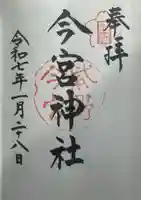 奉拝
今宮神社
令和七年一月二十八日